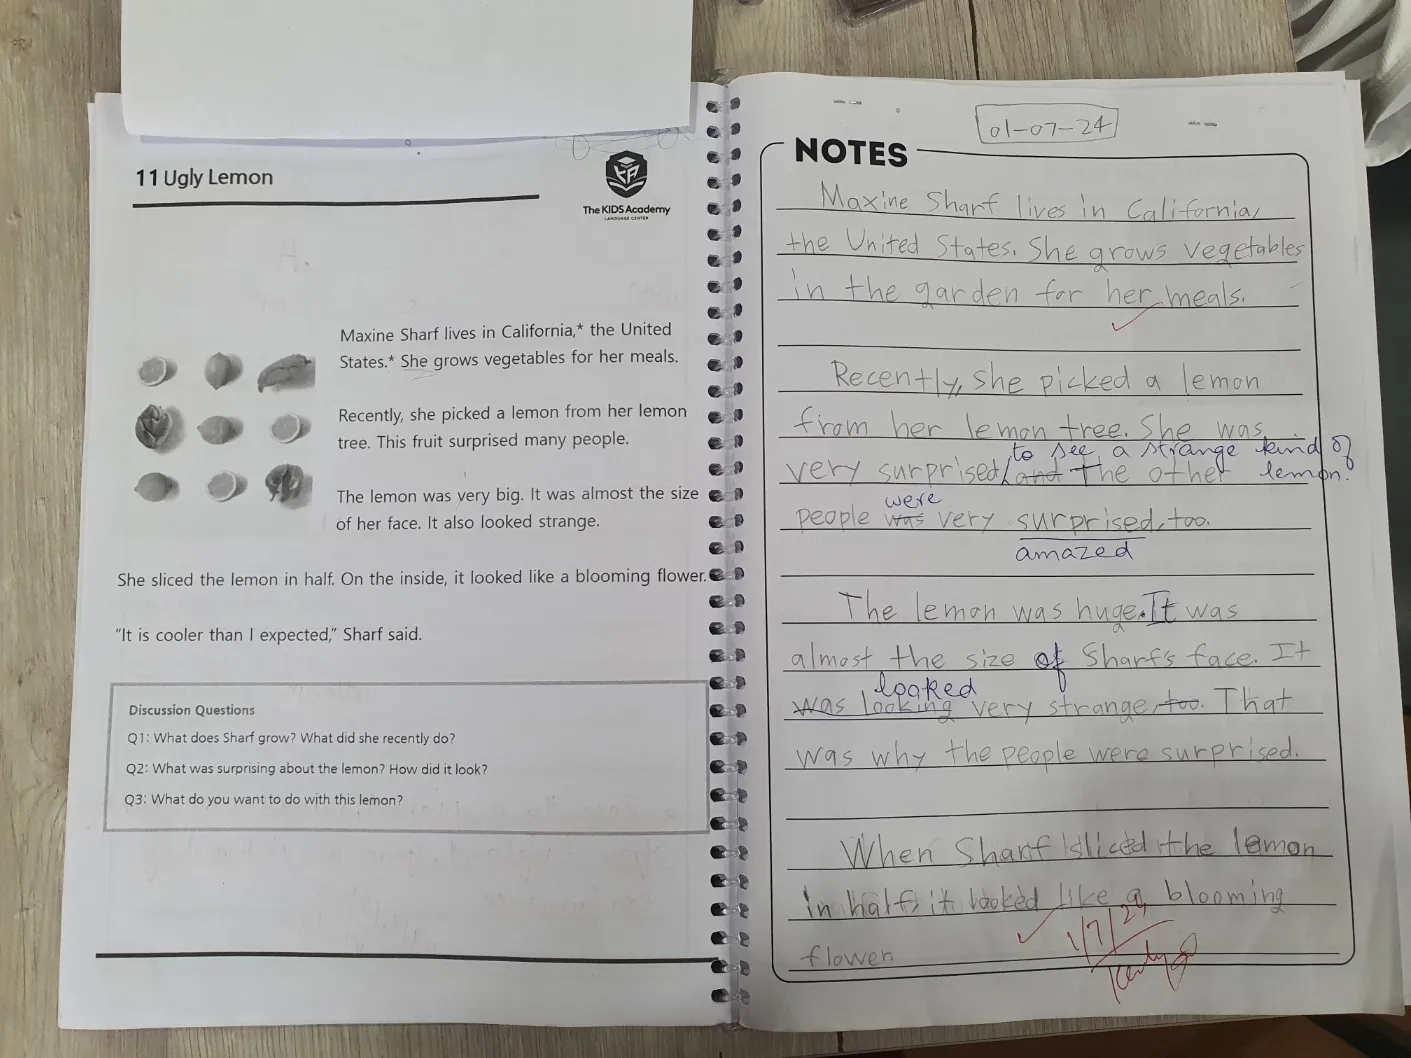 11 Ugly Lemon
The KIDS Academy
LANGUAGE CENTER
Maxine Sharf lives in California,* the United
States.* She grows vegetables for her meals.
Recently, she picked a lemon from her lemon
tree. This fruit surprised many people.
The lemon was very big. It was almost the size
of her face. It also looked strange.
She sliced the lemon in half. On the inside, it looked like a blooming flower.
“It is cooler than I expected,” Sharf said.
Discussion Questions
Q1: What does Sharf grow? What did she recently do?
Q2: What was surprising about the lemon? How did it look?
Q3: What do you want to do with this lemon?
01-07-24
NOTES
Maxine Sharf lives in California,
the United States. She grows vegetables
in the garden for her meals.
Recently, she picked a lemon
from her lemon tree. She was
to see a strange kind of
very surprised/and The other lemon.
were
people was very surprised, too.
amazed
The lemon was huge. It was
almost the size of Sharf's face. It
looked
was looking very strange, too. That
was why the people were surprised.
When Sharf sliced the lemon
in half, it looked like a blooming
flower
1/7/24